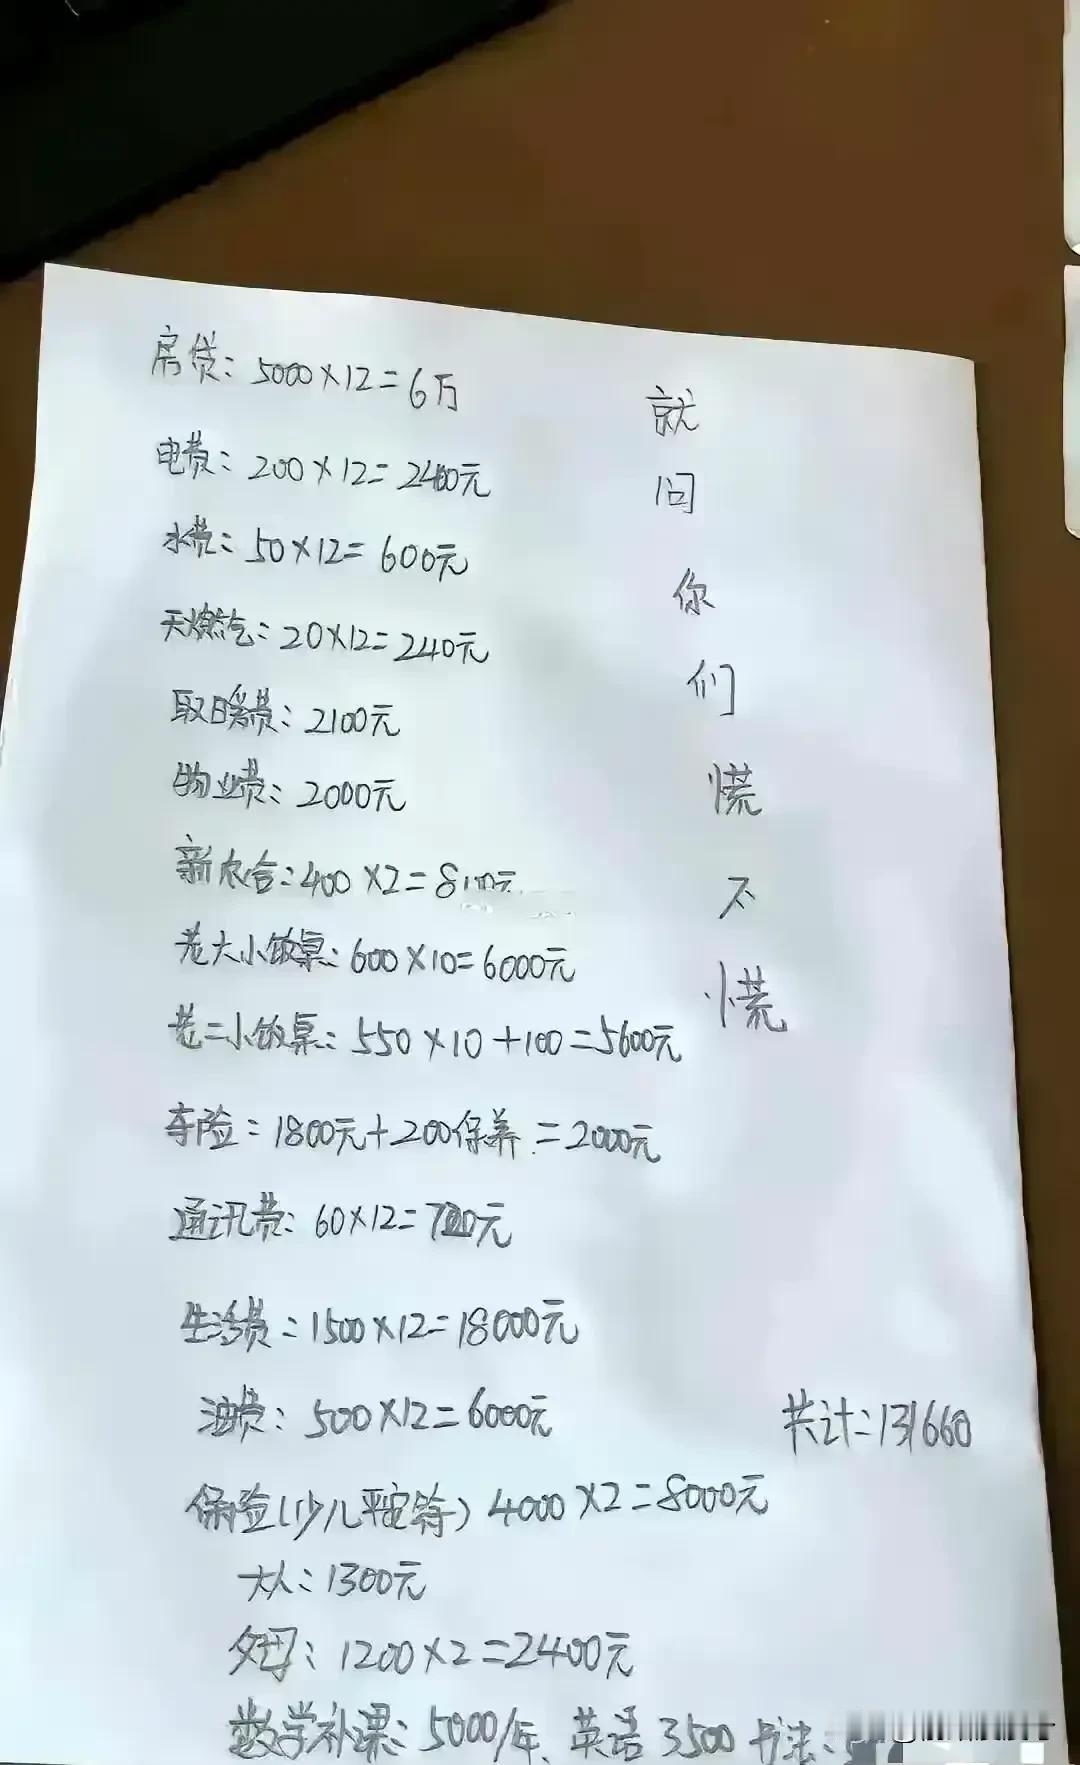 房贷：5000×12=6万
电费：200×12=2400元
水费：50×12=600元
天燃气：20×12=240元
取暖费：2100元
物业费：2000元
新农合：400×2=800元
老大小饭桌：600×10=6000元
老二小饭桌：550×10+100=5600元
车险：1800元+200保养=2000元
通讯费：60×12=720元
生活费：1500×12=18000元
油费：500×12=6000元
保险(少儿平安等) 4000×2=8000元
大人：1300元
父母：1200×2=2400元
数学补课：5000/年、英语3500 书法：
就问你们慌不慌
共计：131660